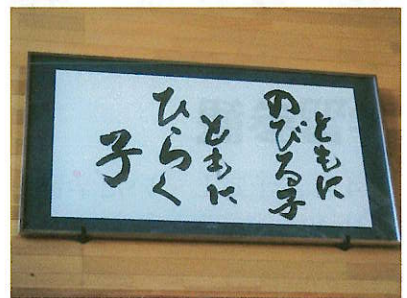 ともに
のびる子
ともに
ひらく
子